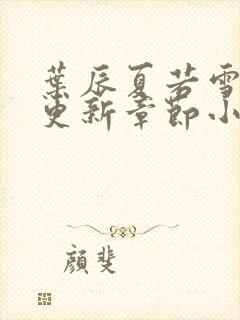 葉辰夏若雪
更新章節小
顏斐